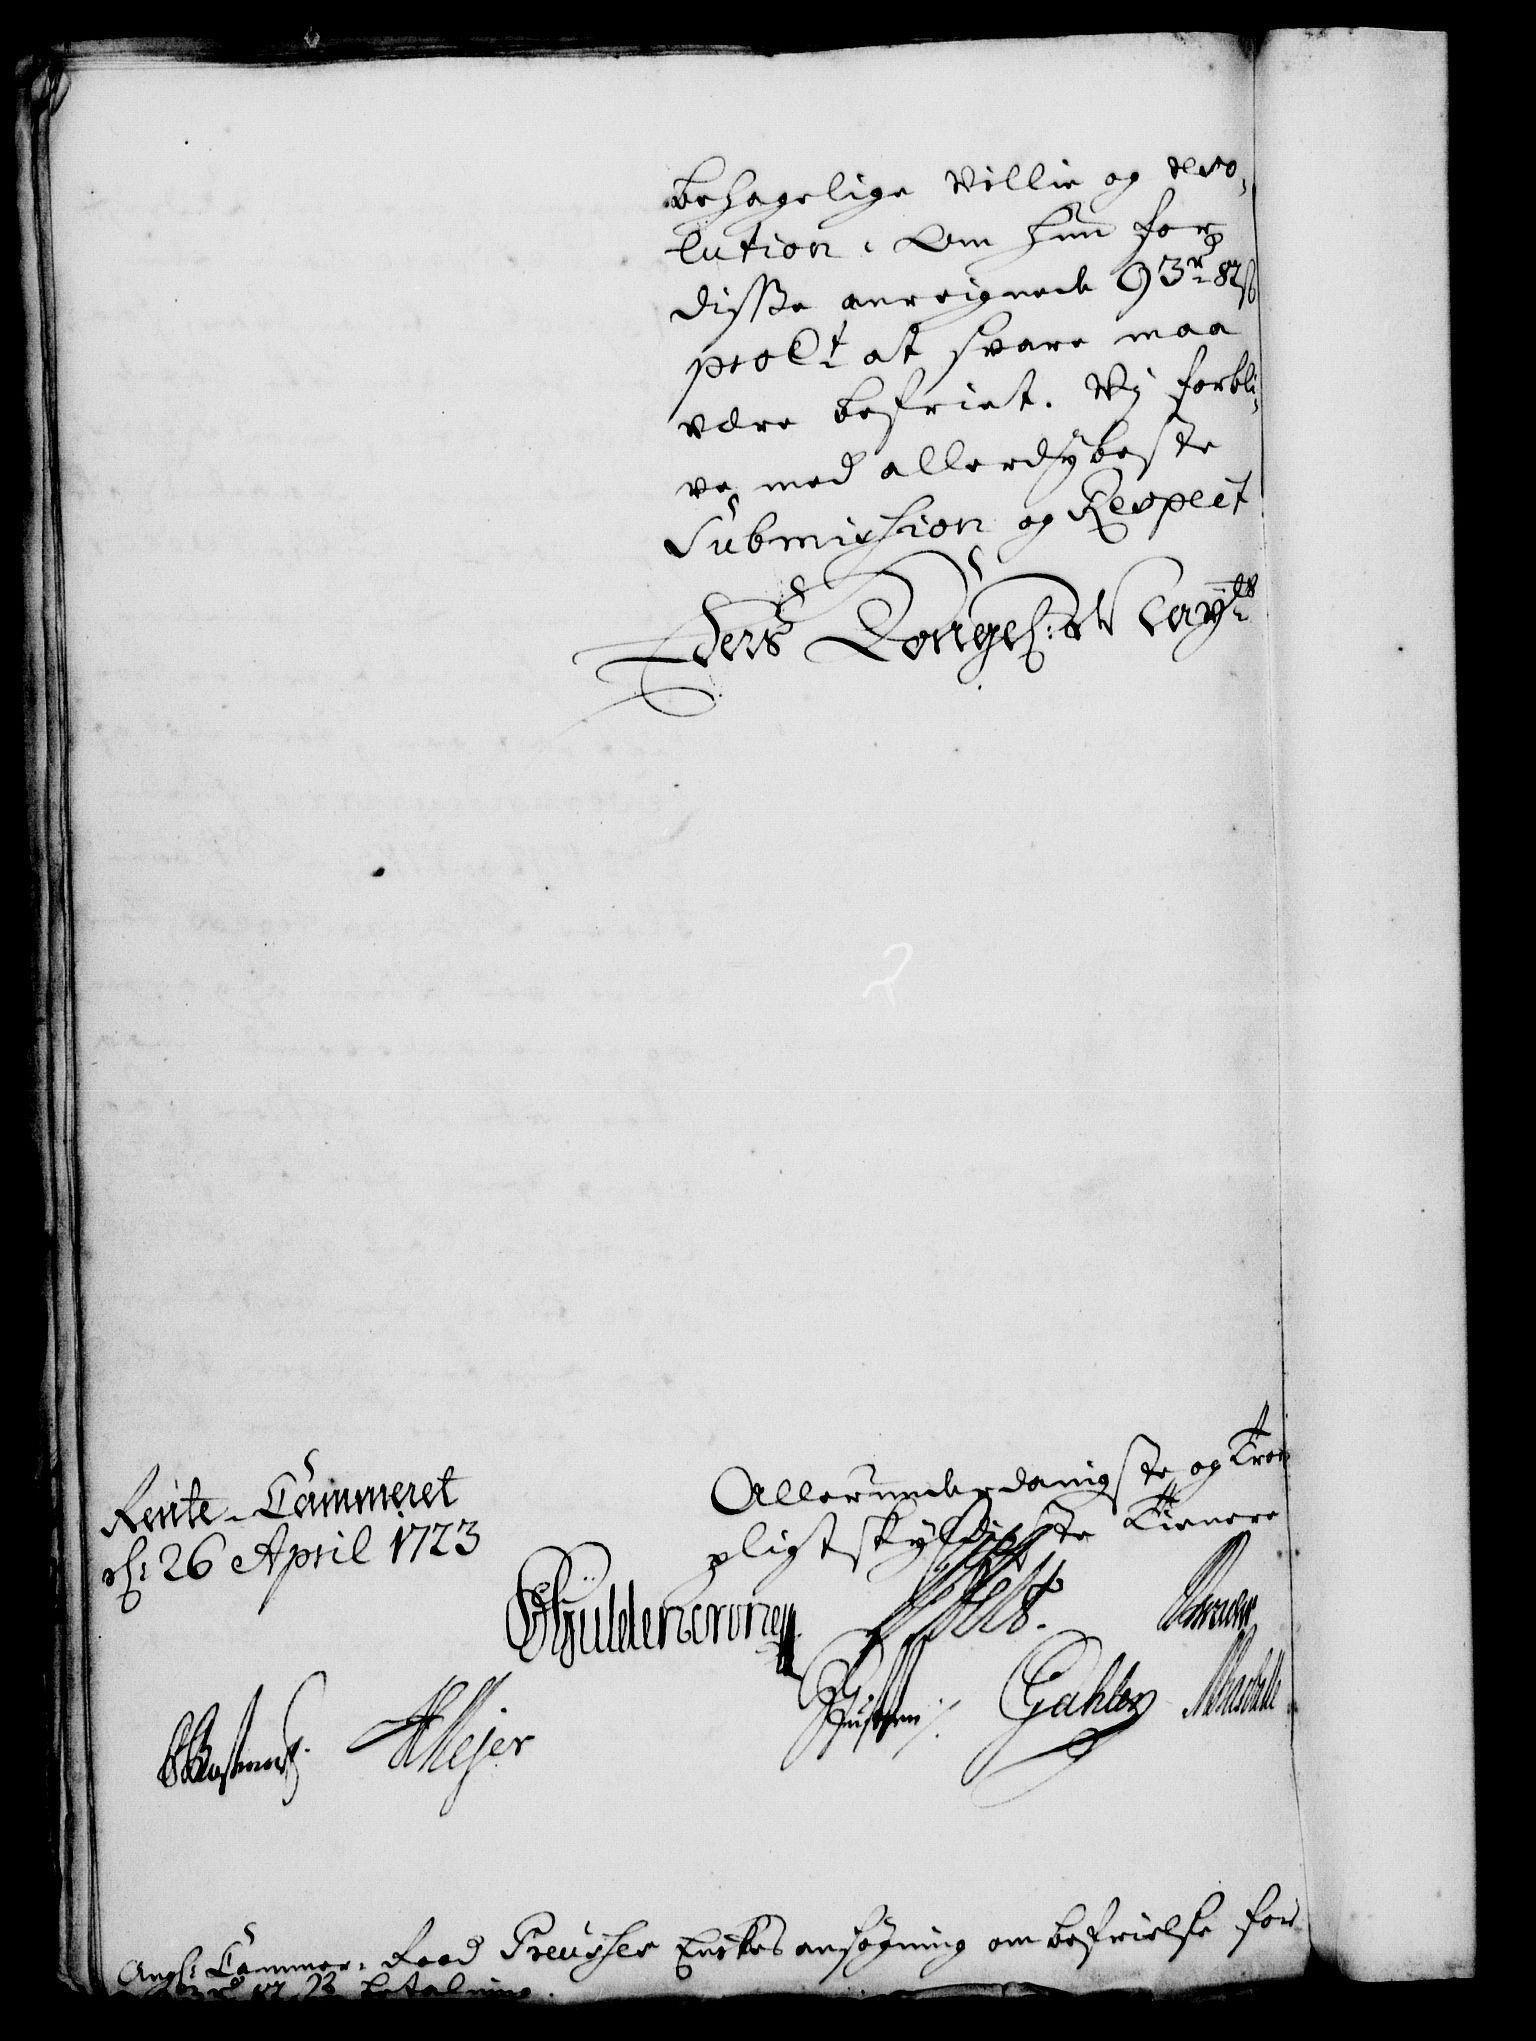 behagelige Villie og reso,
lution, om hun for
disse anreignede 93 rd 87 s
at svare maa
være befriet. Vj forbli,
ve med allerdybeste
Submission og Respect
Eders Kongel: Mayts
Rente-Cammeret
d: 26 April 1723
Allerunderdanigste og Troe
pligtskyldigste Tienere
Gÿldencrone
Gahler
Mejer
Angl: Cammer-Raad Preusses Enckes ansøgning om befrielse for
betalning.